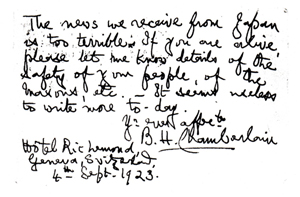 The news we receive from Japan
is too terrible. If you are alive
please let me know details of the
safety of your people, of the
Masons etc. – It seems useless
to write more to-day.
Yr ever affte
B. H. Chamberlain
Hotel Richemond,
Geneva, Switzerland.
4th Sept. 1923.